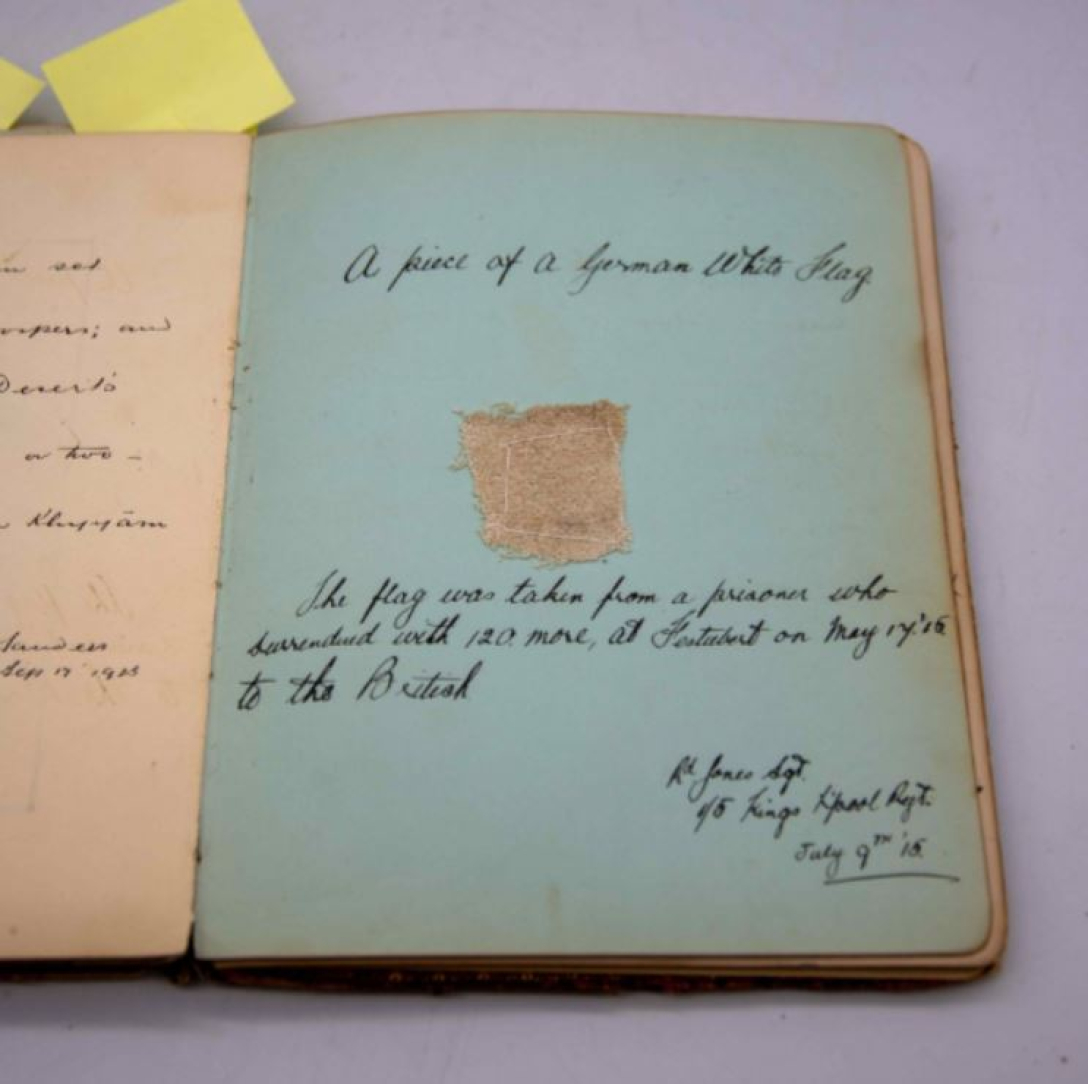 set
; and
Deserts
or two -
Khayyám
Sep 17 1915
A piece of a German White Flag.
The flag was taken from a prisoner who
surrendued with 120 more, at Festubert on May 17.'15
to the British
Rd Jones Sgt.
1/5 Kings L'pool Regt.
July 9TH '15.